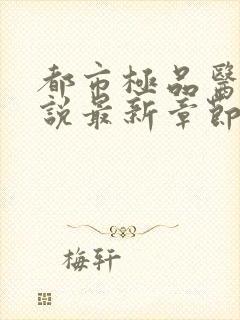 都市極品醫
說最新章節
梅轩